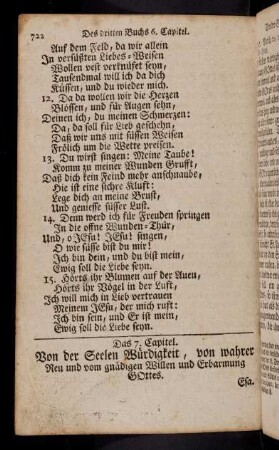 722 Des dritten Buchs 6. Capitel.
Auf dem Feld, da wir allein
In versüßten Liebes-Weisen
Wollen vest verknüpfet seyn,
Tausendmal will ich da dich
Küssen, und du wieder mich.
12. Da da wollen wir die Herzen
Blößen, und für Augen sehn,
Deinen ich, du meinen Schmerzen:
Da, da soll für Lieb geschehn,
Daß wir uns mit süssen Weisen
Frölich um die Wette preisen.
13. Du wirst singen: Meine Taube!
Komm zu meiner Wunden Grufft,
Daß dich kein Feind mehr anschnaube,
Hie ist eine sichre Kluft:
Lege dich an meine Brust,
Und geniesse süsser Lust.
14. Denn werd ich für Freuden springen
In die offne Wunden-Thür,
Und, o JEsu! JEsu! singen,
O wie süsse bist du mir!
Ich bin dein, und du bist mein,
Ewig soll die Liebe seyn.
15. Hörts ihr Blumen auf der Auen,
Hörts ihr Vögel in der Luft,
Ich will mich in Lieb vertrauen
Meinem JEsu, der mich ruft:
Ich bin sein, und Er ist mein,
Ewig soll die Liebe seyn.
Das 7. Capitel.
Von der Seelen Würdigkeit, von wahrer
Reu und vom gnädigen Willen und Erbarmung
GOttes.
Esa.